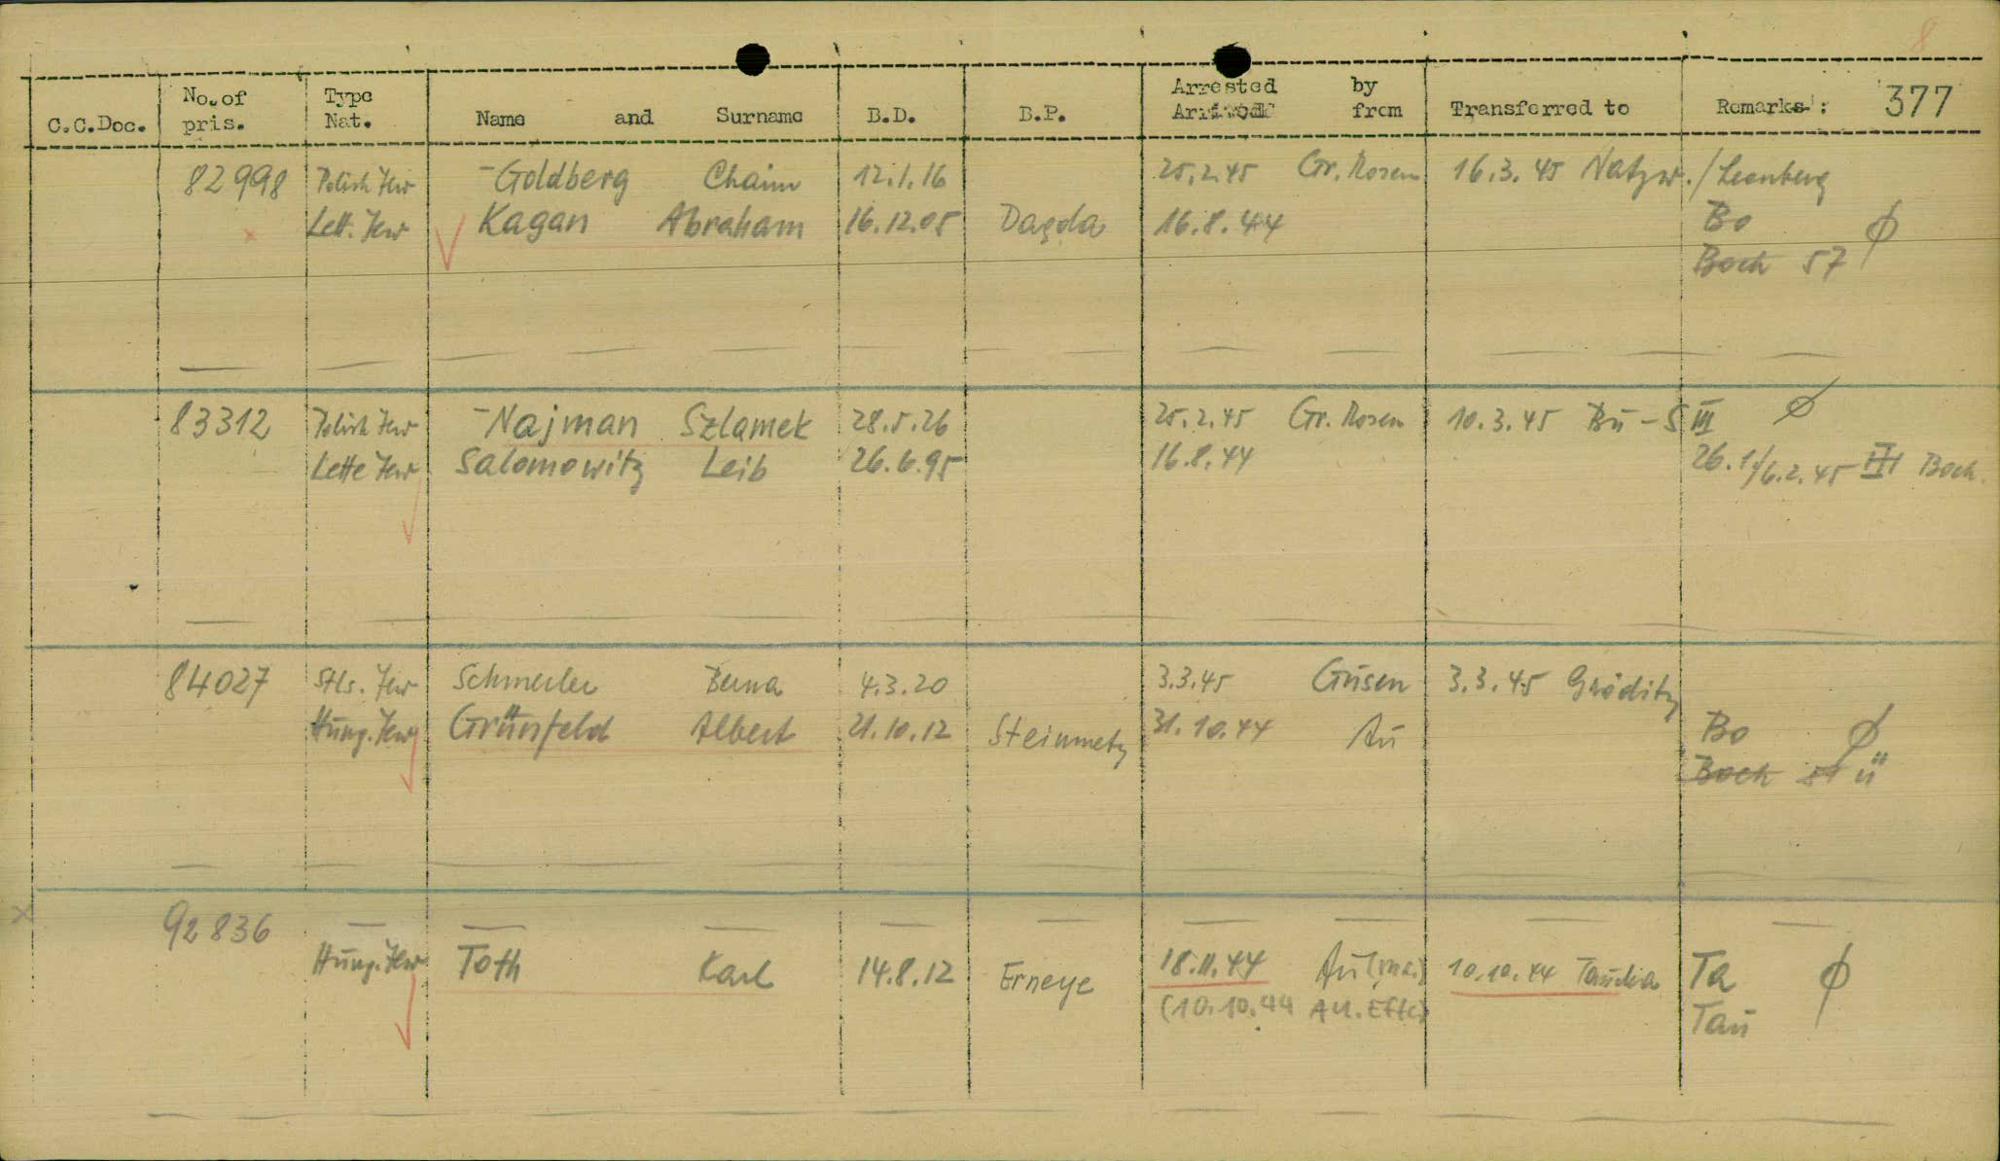 8
C.C.Doc. No. of pris. Type Nat. Name and Surname B.D. B.P. Arrested by Arrived from Transferred to Remarks: 377
82998 Polish Jew -Goldberg Chaim 12.1.16 25.2.45 Gr. Rosen 16.3.45 Natzw./Leonberg
Lett. Jew Kagan Abraham 16.12.05 Dagda 16.8.44 Bo Ø
Boch 57
83312 Polish Jew -Najman Szlamek 28.5.26 25.2.45 Gr. Rosen 10.3.45 Bū-S III Ø
Lette Jew Salomowitz Leib 26.6.95 16.8.44 26.1/6.2.45 III Boch.
84027 Stls. Jew Schmerler 4.3.20 3.3.45 Gūsen 3.3.45 Gröditz
Hūng. Jew Grünfeld Albert 21.10.12 Steinmetz 31.10.44 Aū Bo Ø
Boch ü
92836
Hūng. Jew Toth Karl 14.8.12 Erneye 18.11.44 Aū 10.10.44 Taūcha Ta Ø
(10.10.44 Au. Taū